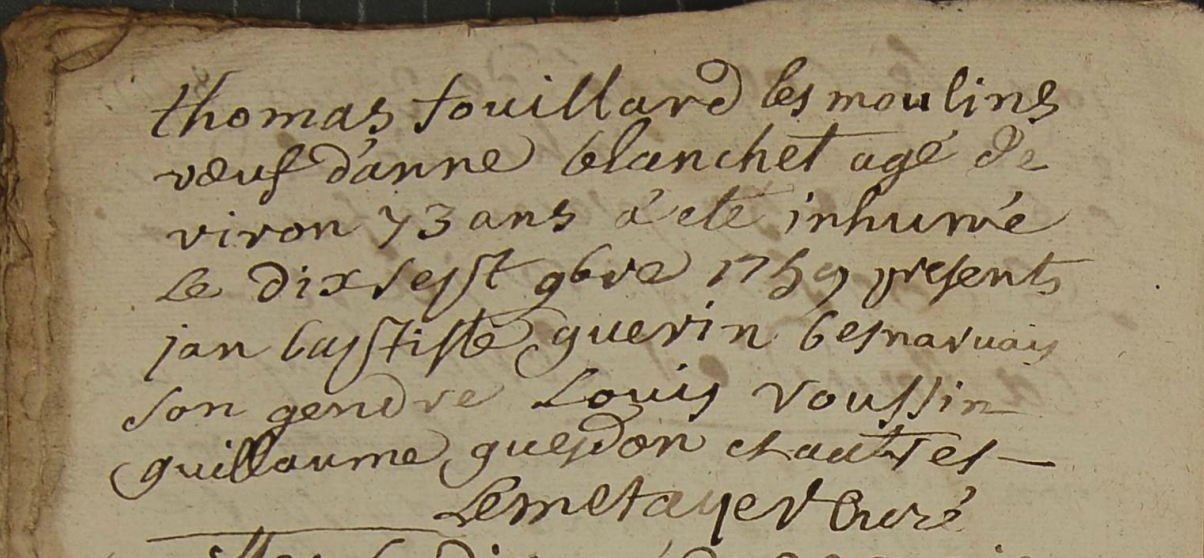 thomas fouillard les moulins
vœuf d'anne blanchet agé de
viron 73 ans a été inhumé
Le dix sept 9bre 1759 presents
jan baptiste guerin
son gendre Louis voussin
guillaume guesdon et autres —
Lemetayer Curé